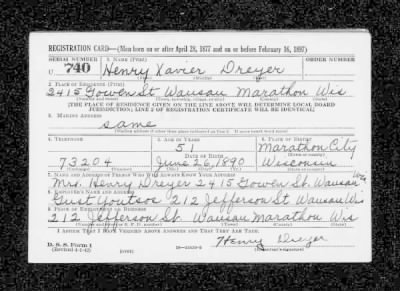 REGISTRATION CARD—(Men born on or after April 28, 1877 and on or before February 16, 1897)
SERIAL NUMBER 1. NAME (Print) ORDER NUMBER
U 740 Henry Xavier Dreyer
(First) (Middle) (Last)
2. PLACE OF RESIDENCE (Print)
2415 Gowen St. Wausau Marathon Wis
(Number and street) (Town, township, village, or city) (County) (State)
[THE PLACE OF RESIDENCE GIVEN ON THE LINE ABOVE WILL DETERMINE LOCAL BOARD
JURISDICTION; LINE 2 OF REGISTRATION CERTIFICATE WILL BE IDENTICAL]
3. MAILING ADDRESS
Same
[Mailing address if other than place indicated on line 2. If same insert word same]
4. TELEPHONE 5. AGE IN YEARS 6. PLACE OF BIRTH
51 Marathon City
DATE OF BIRTH
73204 June 26, 1890 Wisconsin
7. NAME AND ADDRESS OF PERSON WHO WILL ALWAYS KNOW YOUR ADDRESS
Mrs. Henry Dreyer 2415 Gowen St. Wausau Wis
8. EMPLOYER'S NAME AND ADDRESS
Gust Youtsos 212 Jefferson St Wausau Wis
9. PLACE OF EMPLOYMENT OR BUSINESS
212 Jefferson St. Wausau Marathon Wis
(Number and street or R. F. D. number) (Town) (County) (State)
I AFFIRM THAT I HAVE VERIFIED ABOVE ANSWERS AND THAT THEY ARE TRUE.
D. S. S. Form 1
(Revised 4-1-42) Henry Dreyer